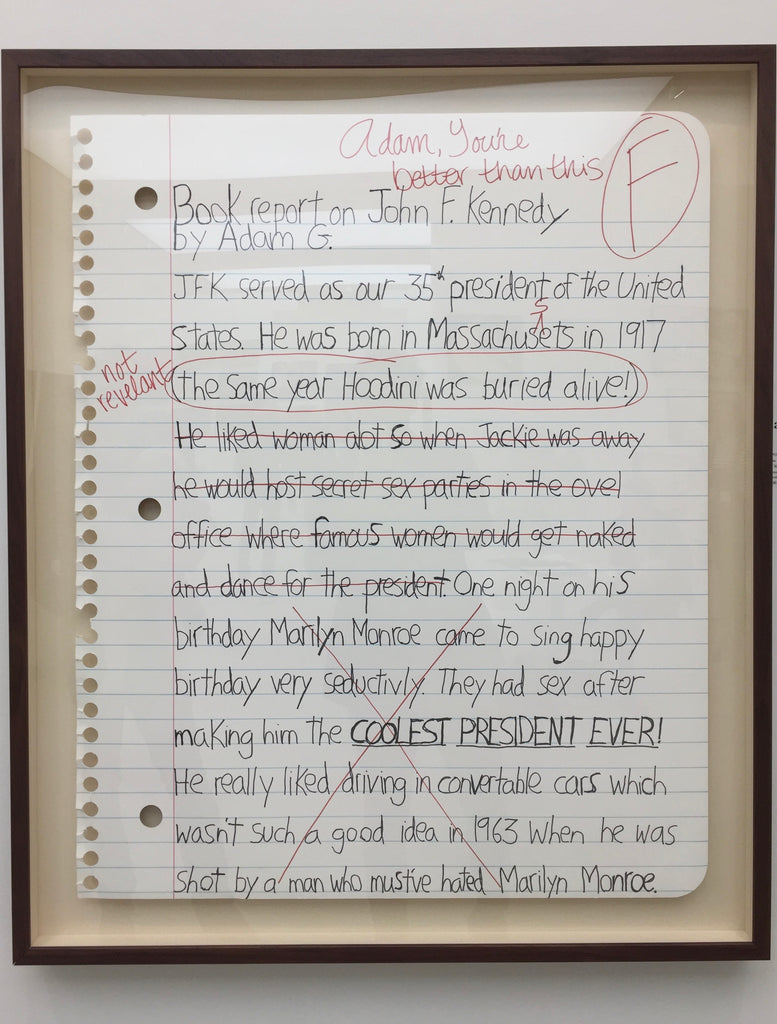 Adam, You're
better than this
F
Book report on John F. Kennedy
by Adam G.
JFK served as our 35th president of the United
S
States. He was born in Massachusets in 1917
not
revelant
(the same year Hoodini was buried alive!)
He liked woman alot so when Jackie was away
he would host secret sex parties in the ovel
office where famous women would get naked
and dance for the president. One night on his
birthday Marilyn Monroe came to sing happy
birthday very seductivly. They had sex after
making him the COOLEST PRESIDENT EVER!
He really liked driving in convertable cars which
wasn't such a good idea in 1963 when he was
shot by a man who must've hated Marilyn Monroe.